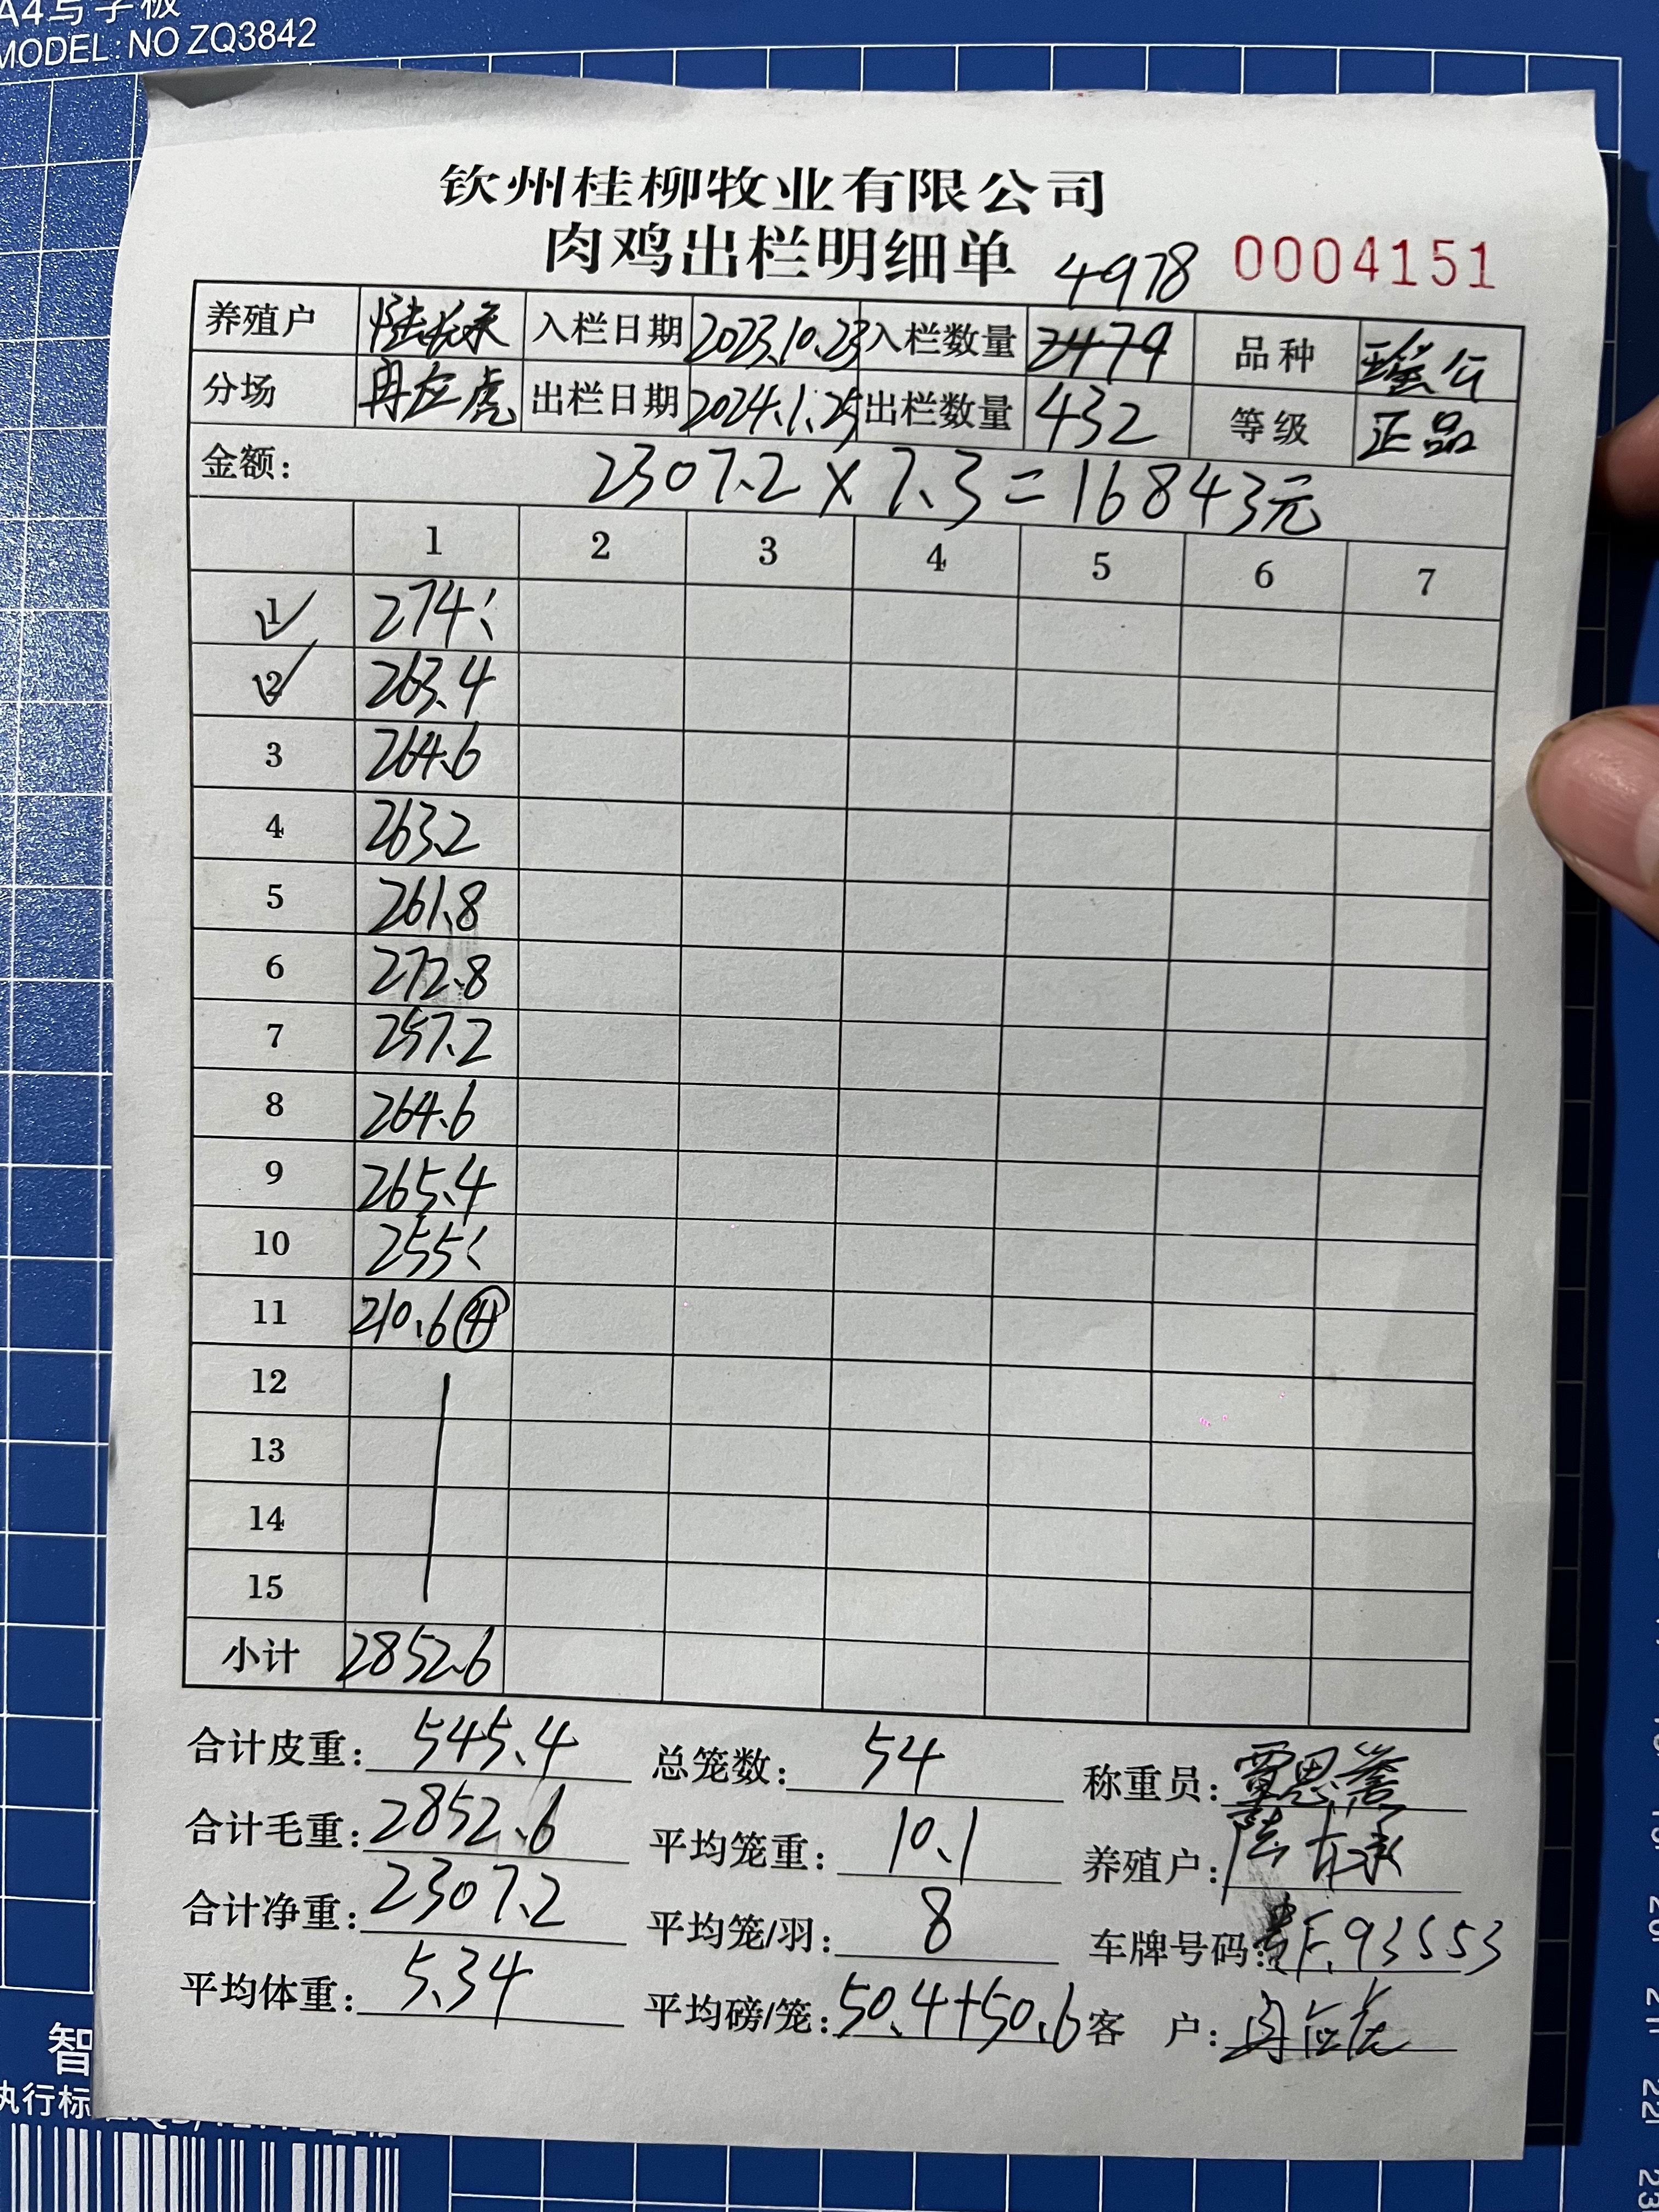 A4写字板
MODEL: NO ZQ3842
钦州桂柳牧业有限公司
肉鸡出栏明细单 4978 0004151
养殖户 入栏日期 2023.10.23 入栏数量 2479 品种 瑶公
分场 出栏日期 2024.1.25 出栏数量 432 等级 正品
金额: 2307.2 × 7.3 = 16843元
1 2 3 4 5 6 7
1 274
2 263.4
3 264.6
4 263.2
5 261.8
6 272.8
7 257.2
8 264.6
9 265.4
10 255
11 210.6 ④
12
13
14
15
小计 2852.6
合计皮重: 545.4 总笼数: 54 称重员: 雷恩誉
合计毛重: 2852.6 平均笼重: 10.1 养殖户:
合计净重: 2307.2 平均笼/羽: 8 车牌号码: F.93553
平均体重: 5.34 平均磅/笼: 50.4+50.6 客 户:
智
执行标